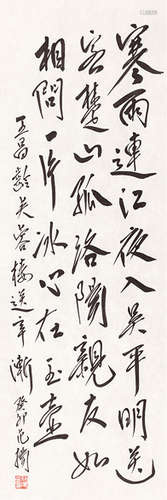 寒雨連江夜入吴平明送
客楚山孤洛陽親友如
相問一片冰心在玉壺
王昌齡芙蓉樓送辛漸
癸卯